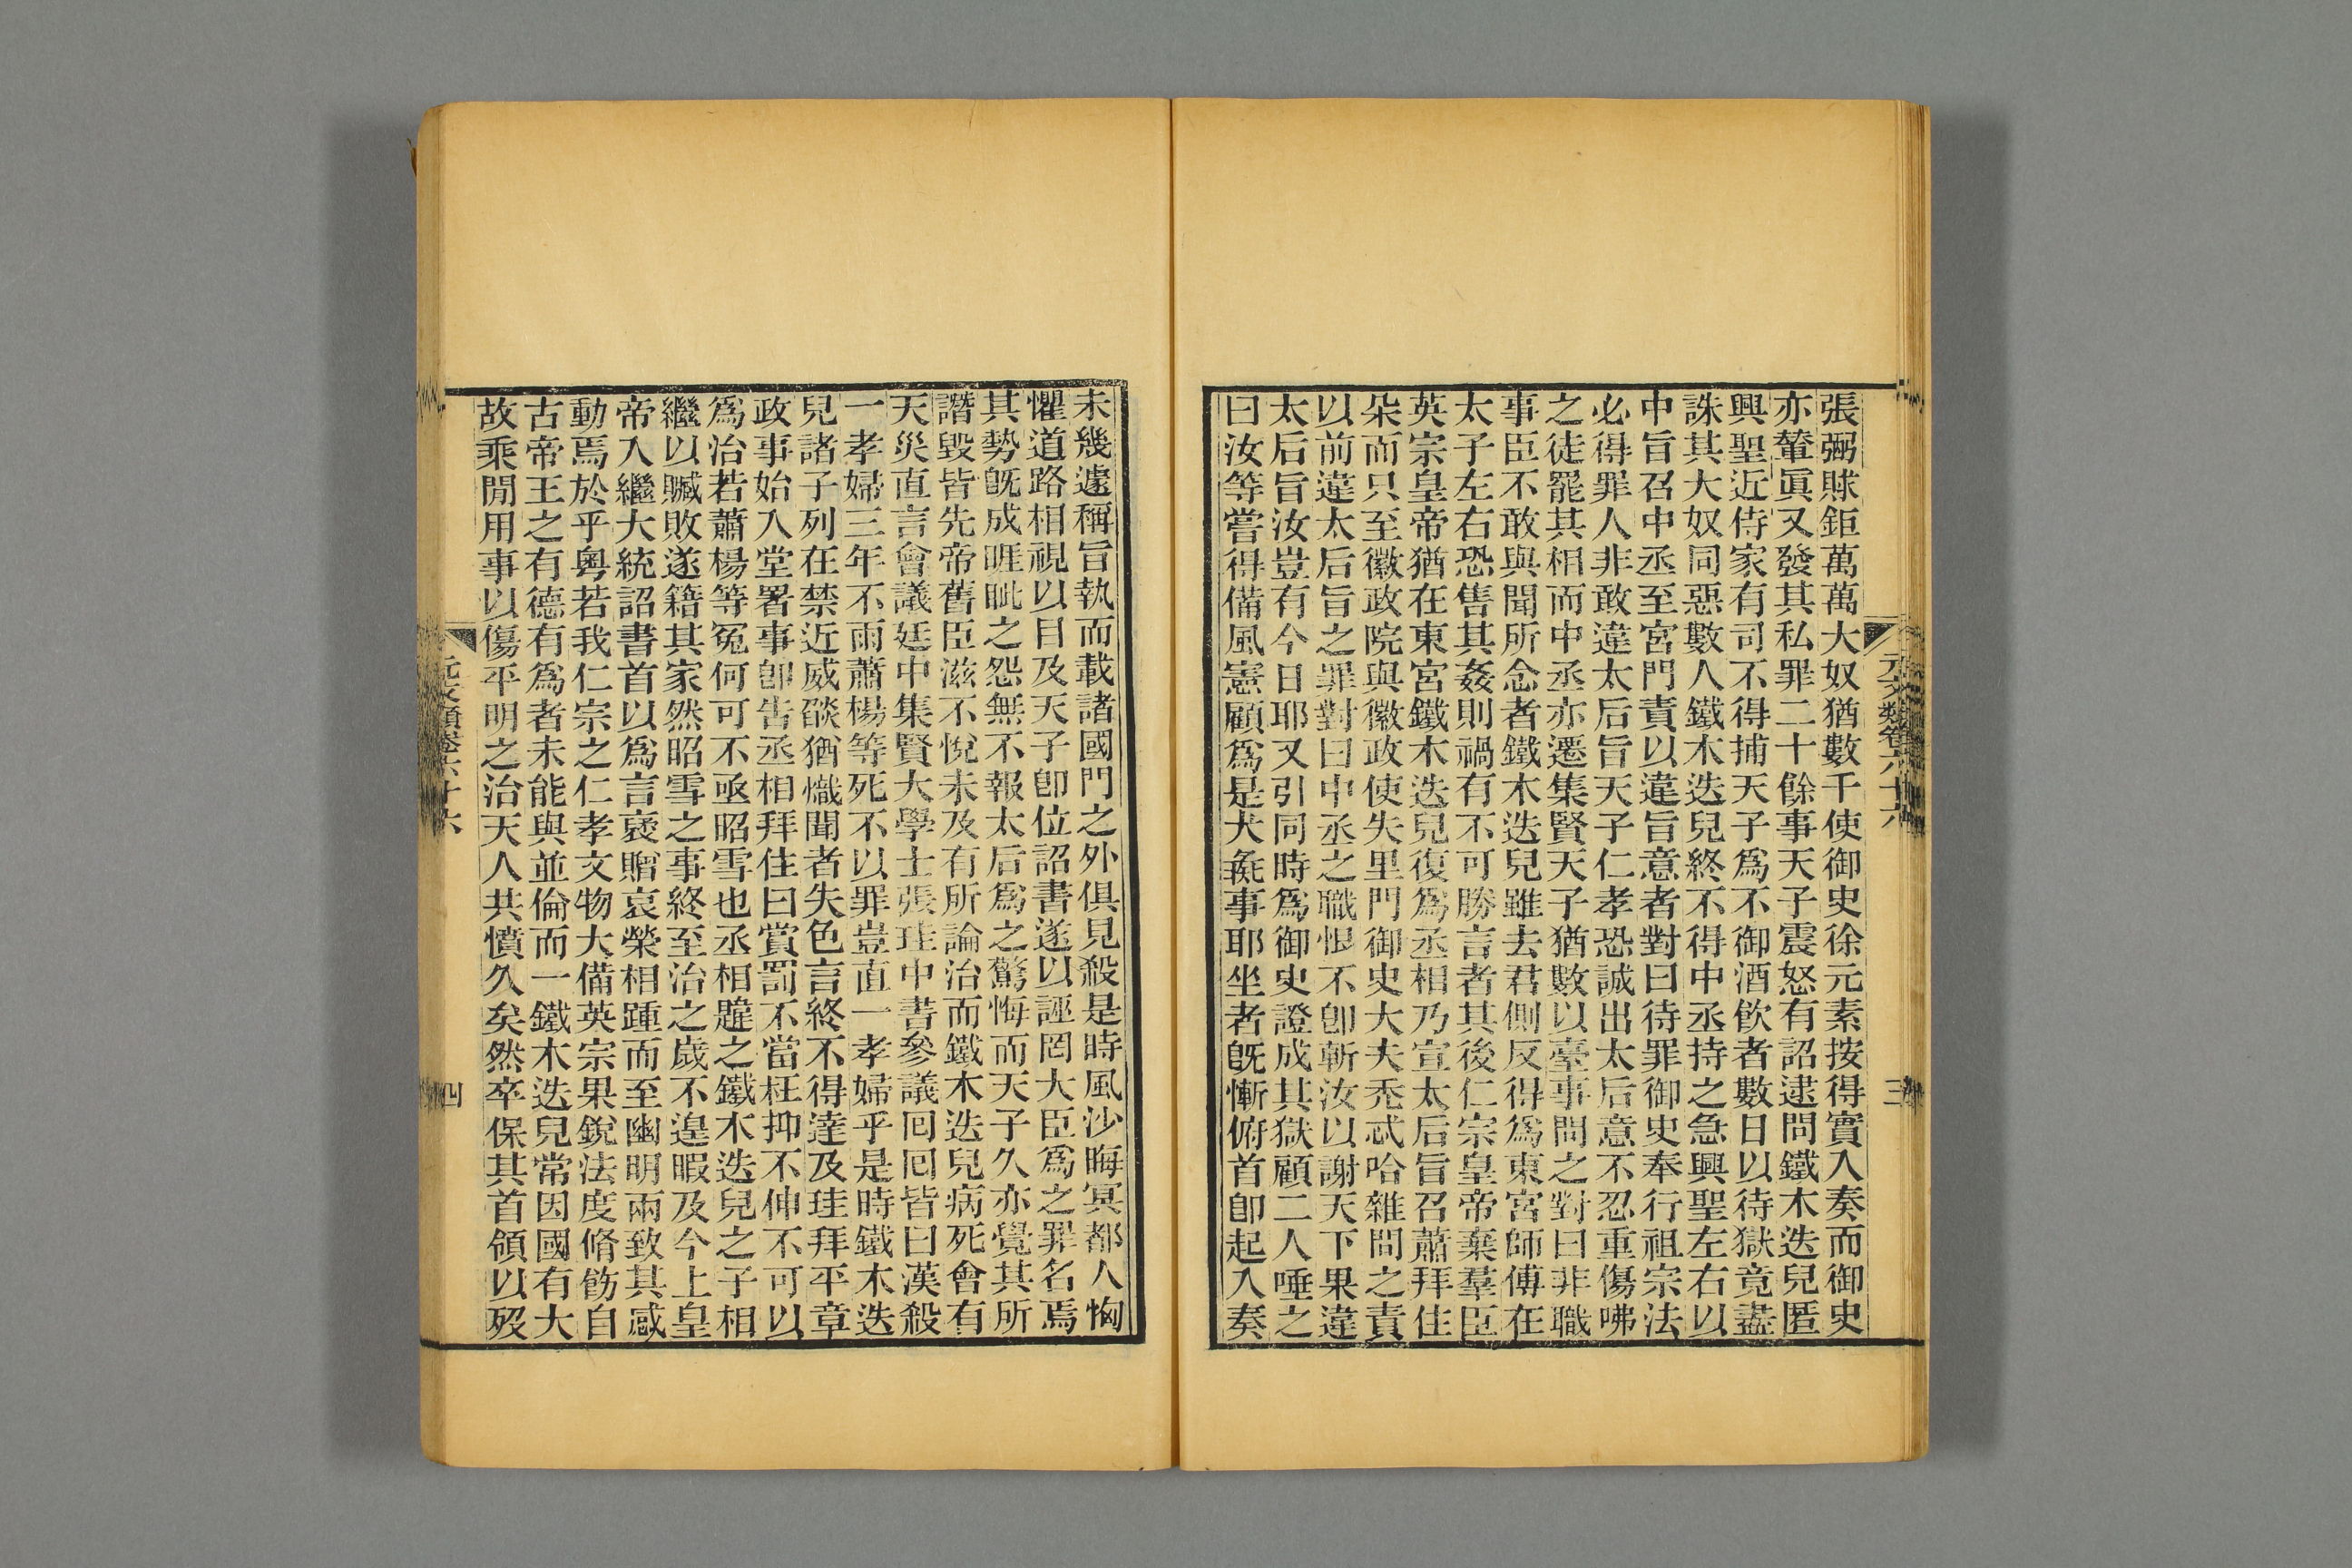 張弼賕鉅萬萬大奴猶數千使御史徐元素按得實入奏而御史
亦輦眞又發其私罪二十餘事天子震怒有詔逮問鐵木迭兒匿
興聖近侍家有司不得捕天子爲不御酒飮者數日以待獄竟盡
誅其大奴同惡數人鐵木迭兒終不得中丞持之急興聖左右以
中旨召中丞至宮門責以違旨意者對曰待罪御史奉行祖宗法
必得罪人非敢違太后旨天子仁孝恐誠出太后意不忍重傷咈
之徒罷其相而中丞亦遷集賢天子猶數以臺事問之對曰非職
事臣不敢與聞所念者鐵木迭兒雖去君側反得爲東宮師傅在
太子左右恐售其姦則禍有不可勝言者其後仁宗皇帝棄羣臣
英宗皇帝猶在東宮鐵木迭兒復爲丞相乃宣太后旨召蕭拜住
朶而只至徽政院與徽政使失里門御史大夫禿忒哈雜問之責
以前違太后旨之罪對曰中丞之職恨不卽斬汝以謝天下果違
太后旨汝豈有今日耶又引同時爲御史證成其獄顧二人唾之
曰汝等嘗得備風憲顧爲是犬彘事耶坐者旣慚俯首卽起入奏
元文類卷六十六
三
未幾遽稱旨執而載諸國門之外俱見殺是時風沙晦冥都人恟
懼道路相視以目及天子卽位詔書遂以誣罔大臣爲之罪名焉
其勢旣成睚眦之怨無不報太后爲之驚悔而天子久亦覺其所
譖毀皆先帝舊臣滋不悅未及有所論治而鐵木迭兒病死會有
天災直言會議廷中集賢大學士張珪中書參議囘囘皆曰漢殺
一孝婦三年不雨蕭楊等死不以罪豈直一孝婦乎是時鐵木迭
兒諸子列在禁近威燄猶熾聞者失色言終不得達及珪拜平章
政事始入堂署事卽告丞相拜住曰賞罰不當枉抑不伸不可以
爲治若蕭楊等冤何可不亟昭雪也丞相韙之鐵木迭兒之子相
繼以贓敗遂籍其家然昭雪之事終至治之歲不遑暇及今上皇
帝入繼大統詔書首以爲言襃贈哀榮相踵而至幽明兩致其感
動焉於乎粵若我仁宗之仁孝文物大備英宗果銳法度脩飭自
古帝王之有德有爲者未能與並倫而一鐵木迭兒常因國有大
故乘閒用事以傷平明之治天人共憤久矣然卒保其首領以歿
元文類卷六十六
四